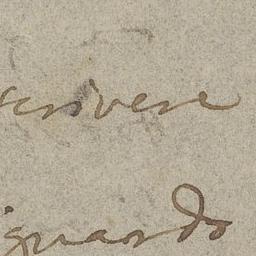 scrivere
iguardo